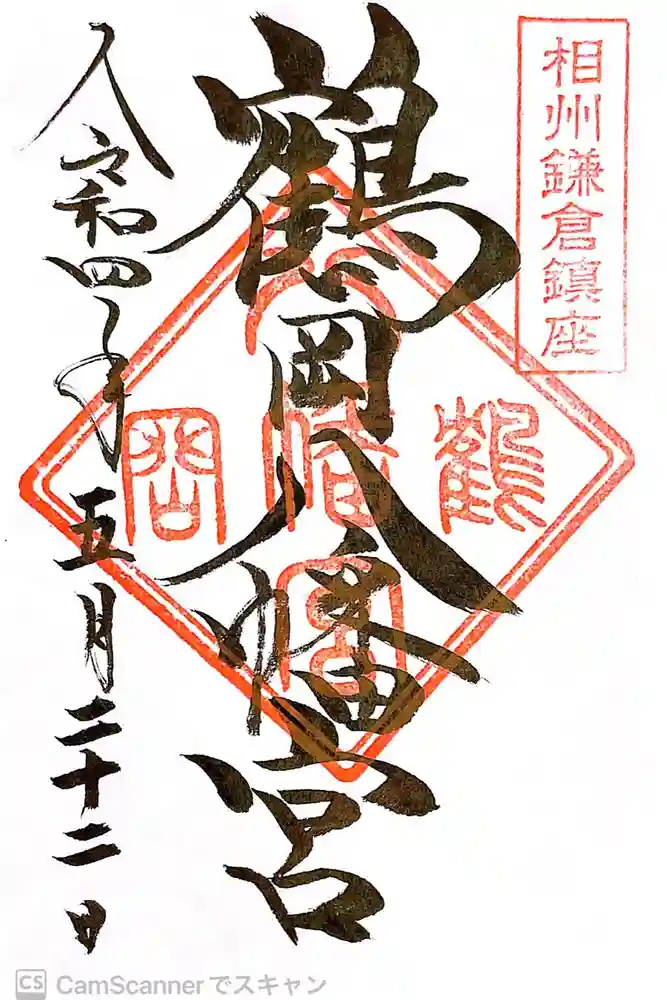 相州鎌倉鎮座
鶴岡八幡宮
鶴
八幡宮
岡
令和四年五月二十二日
CS CamScannerでスキャン